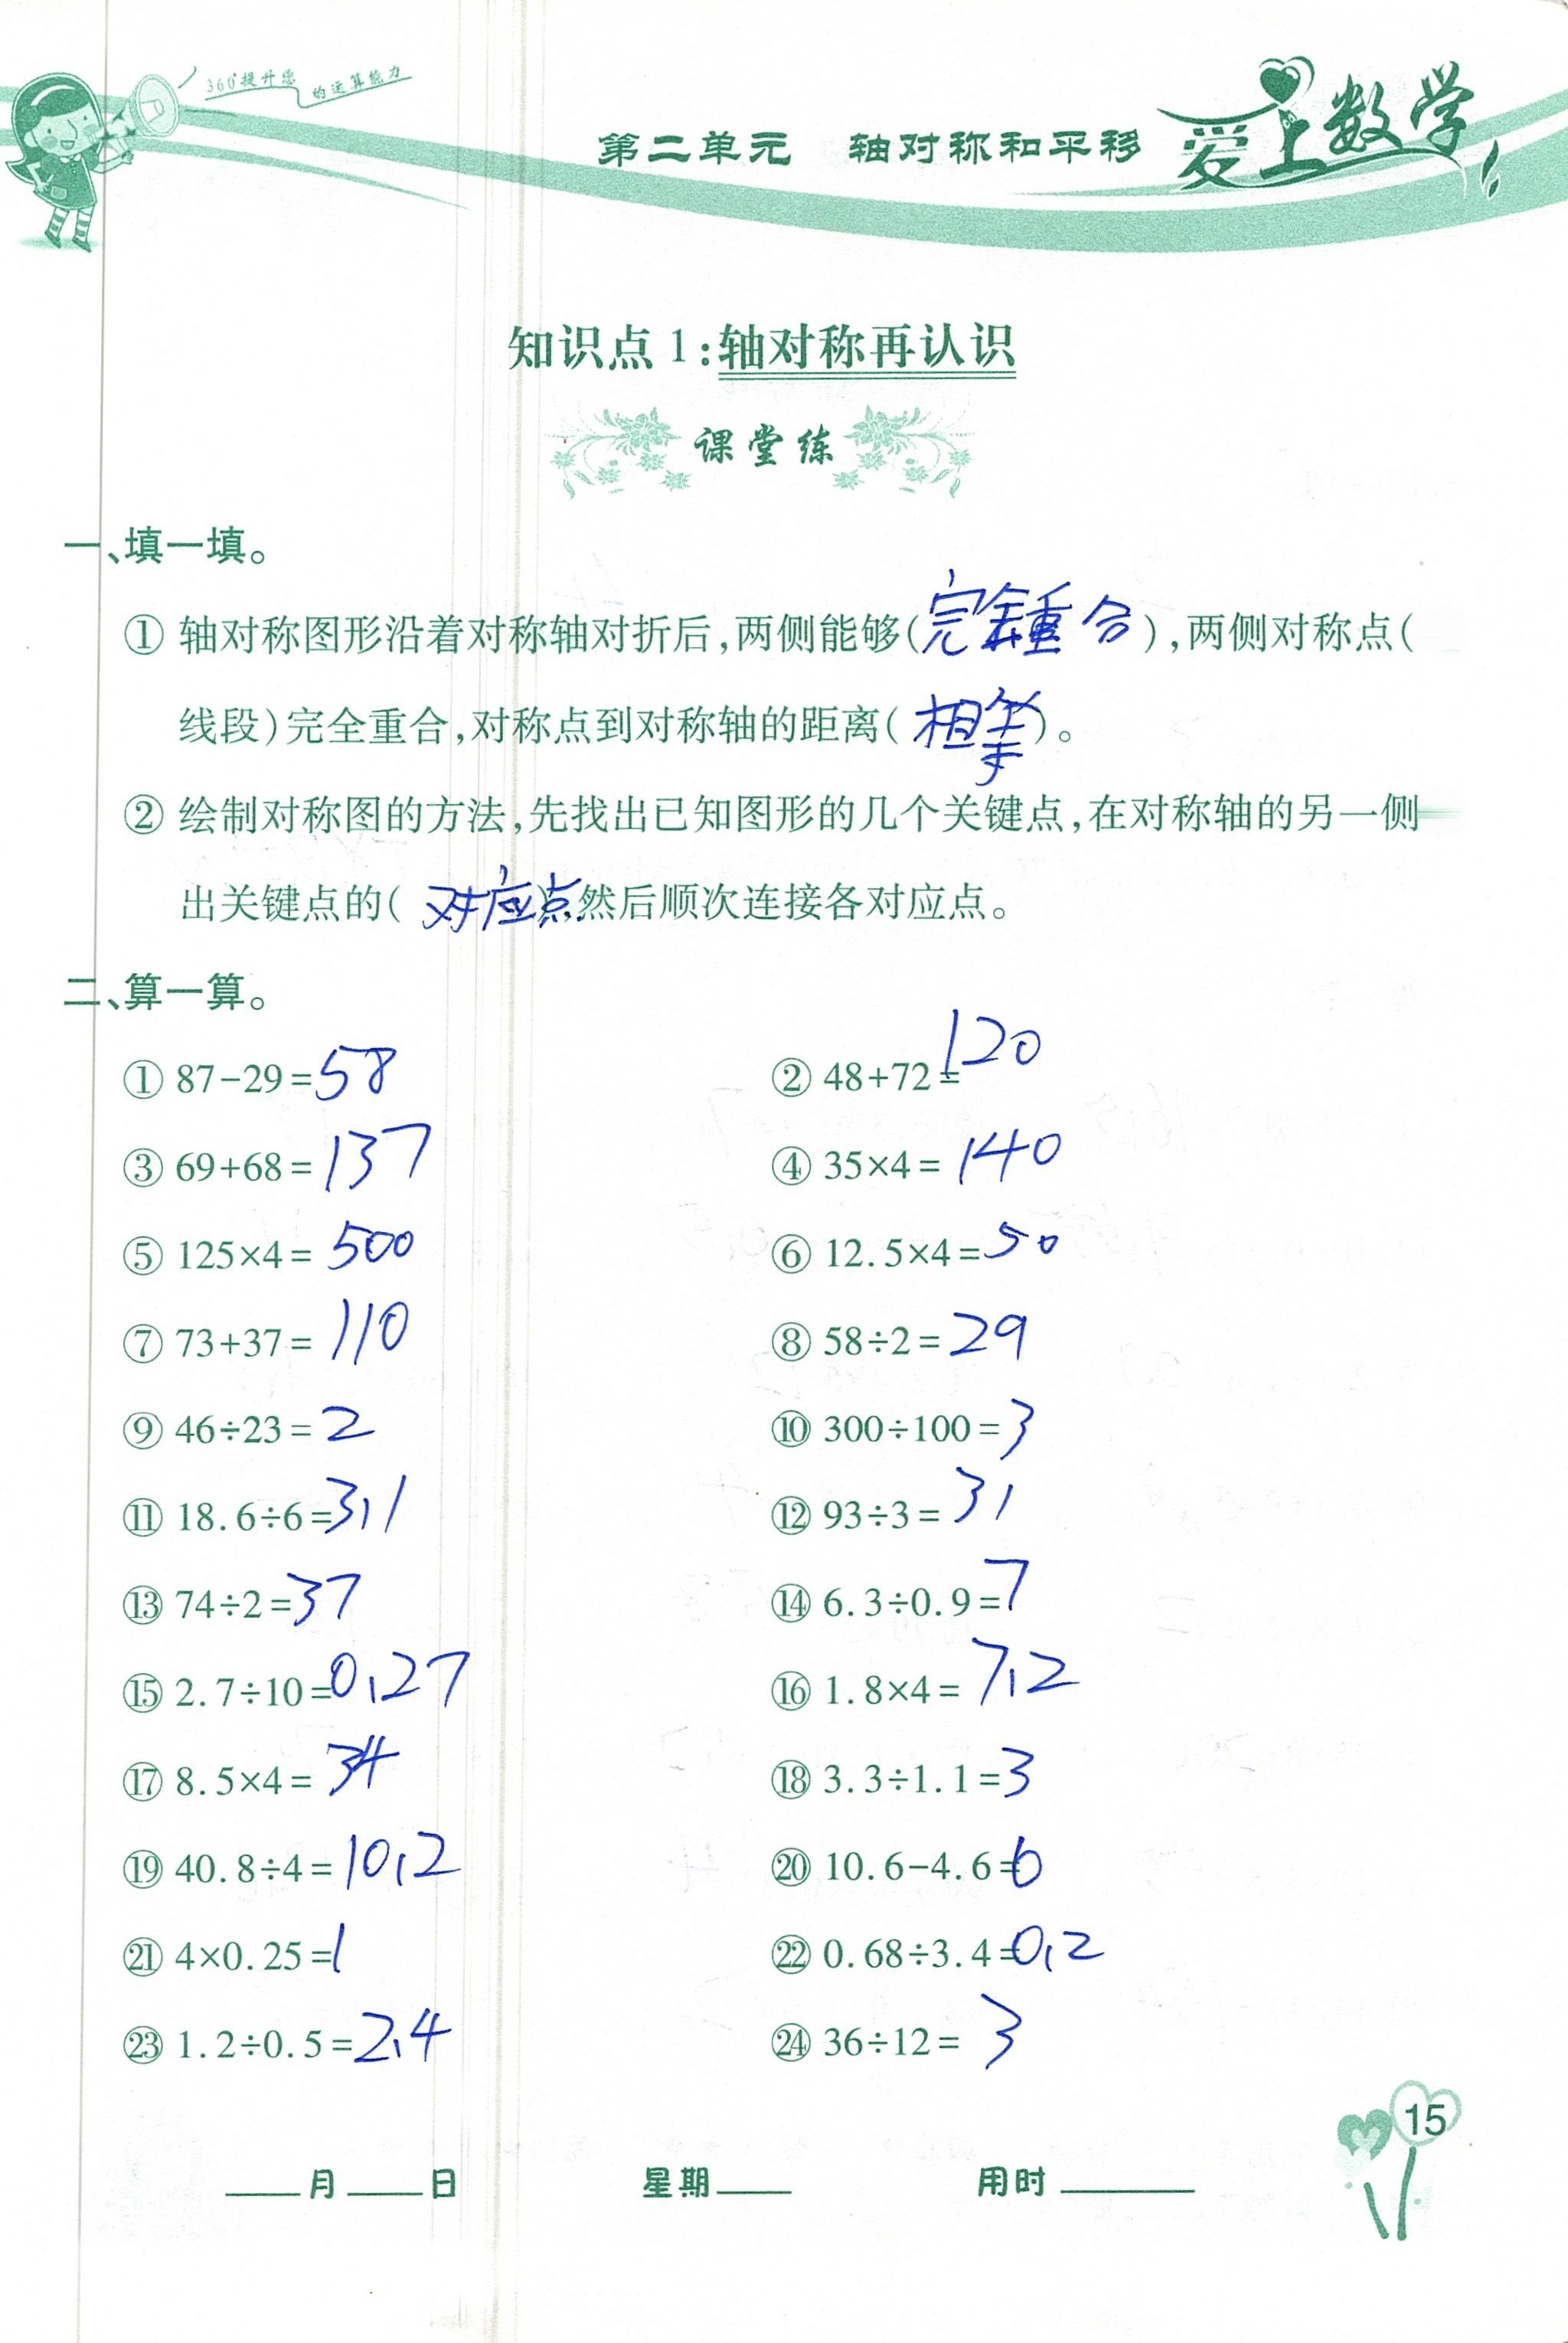 360°提升您的运算能力
第二单元 轴对称和平移 爱上数学
知识点1:轴对称再认识
课堂练
一、填一填。
① 轴对称图形沿着对称轴对折后,两侧能够(完全重合),两侧对称点(
线段)完全重合,对称点到对称轴的距离(相等)。
② 绘制对称图的方法,先找出已知图形的几个关键点,在对称轴的另一侧
出关键点的(对应点),然后顺次连接各对应点。
二、算一算。
① 87-29=58 ② 48+72=120
③ 69+68=137 ④ 35×4=140
⑤ 125×4=500 ⑥ 12.5×4=50
⑦ 73+37=110 ⑧ 58÷2=29
⑨ 46÷23=2 ⑩ 300÷100=3
⑪ 18.6÷6=3.1 ⑫ 93÷3=31
⑬ 74÷2=37 ⑭ 6.3÷0.9=7
⑮ 2.7÷10=0.27 ⑯ 1.8×4=7.2
⑰ 8.5×4=34 ⑱ 3.3÷1.1=3
⑲ 40.8÷4=10.2 ⑳ 10.6-4.6=6
㉑ 4×0.25=1 ㉒ 0.68÷3.4=0.2
㉓ 1.2÷0.5=2.4 ㉔ 36÷12=3
15
____月____日 星期____ 用时______